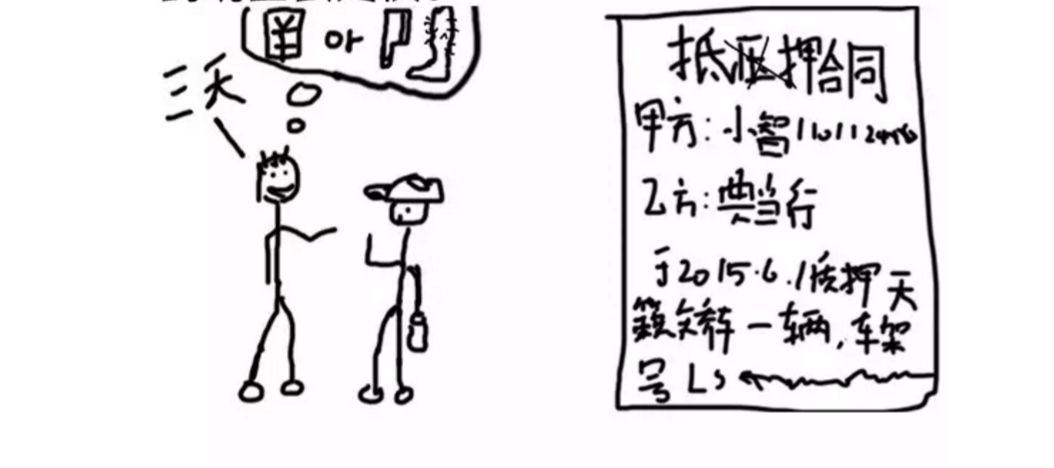 ¥ or
三天
抵押合同
甲方:小智
乙方:典当行
于2015.6.1质押天
籁轿车一辆,车架
号LS